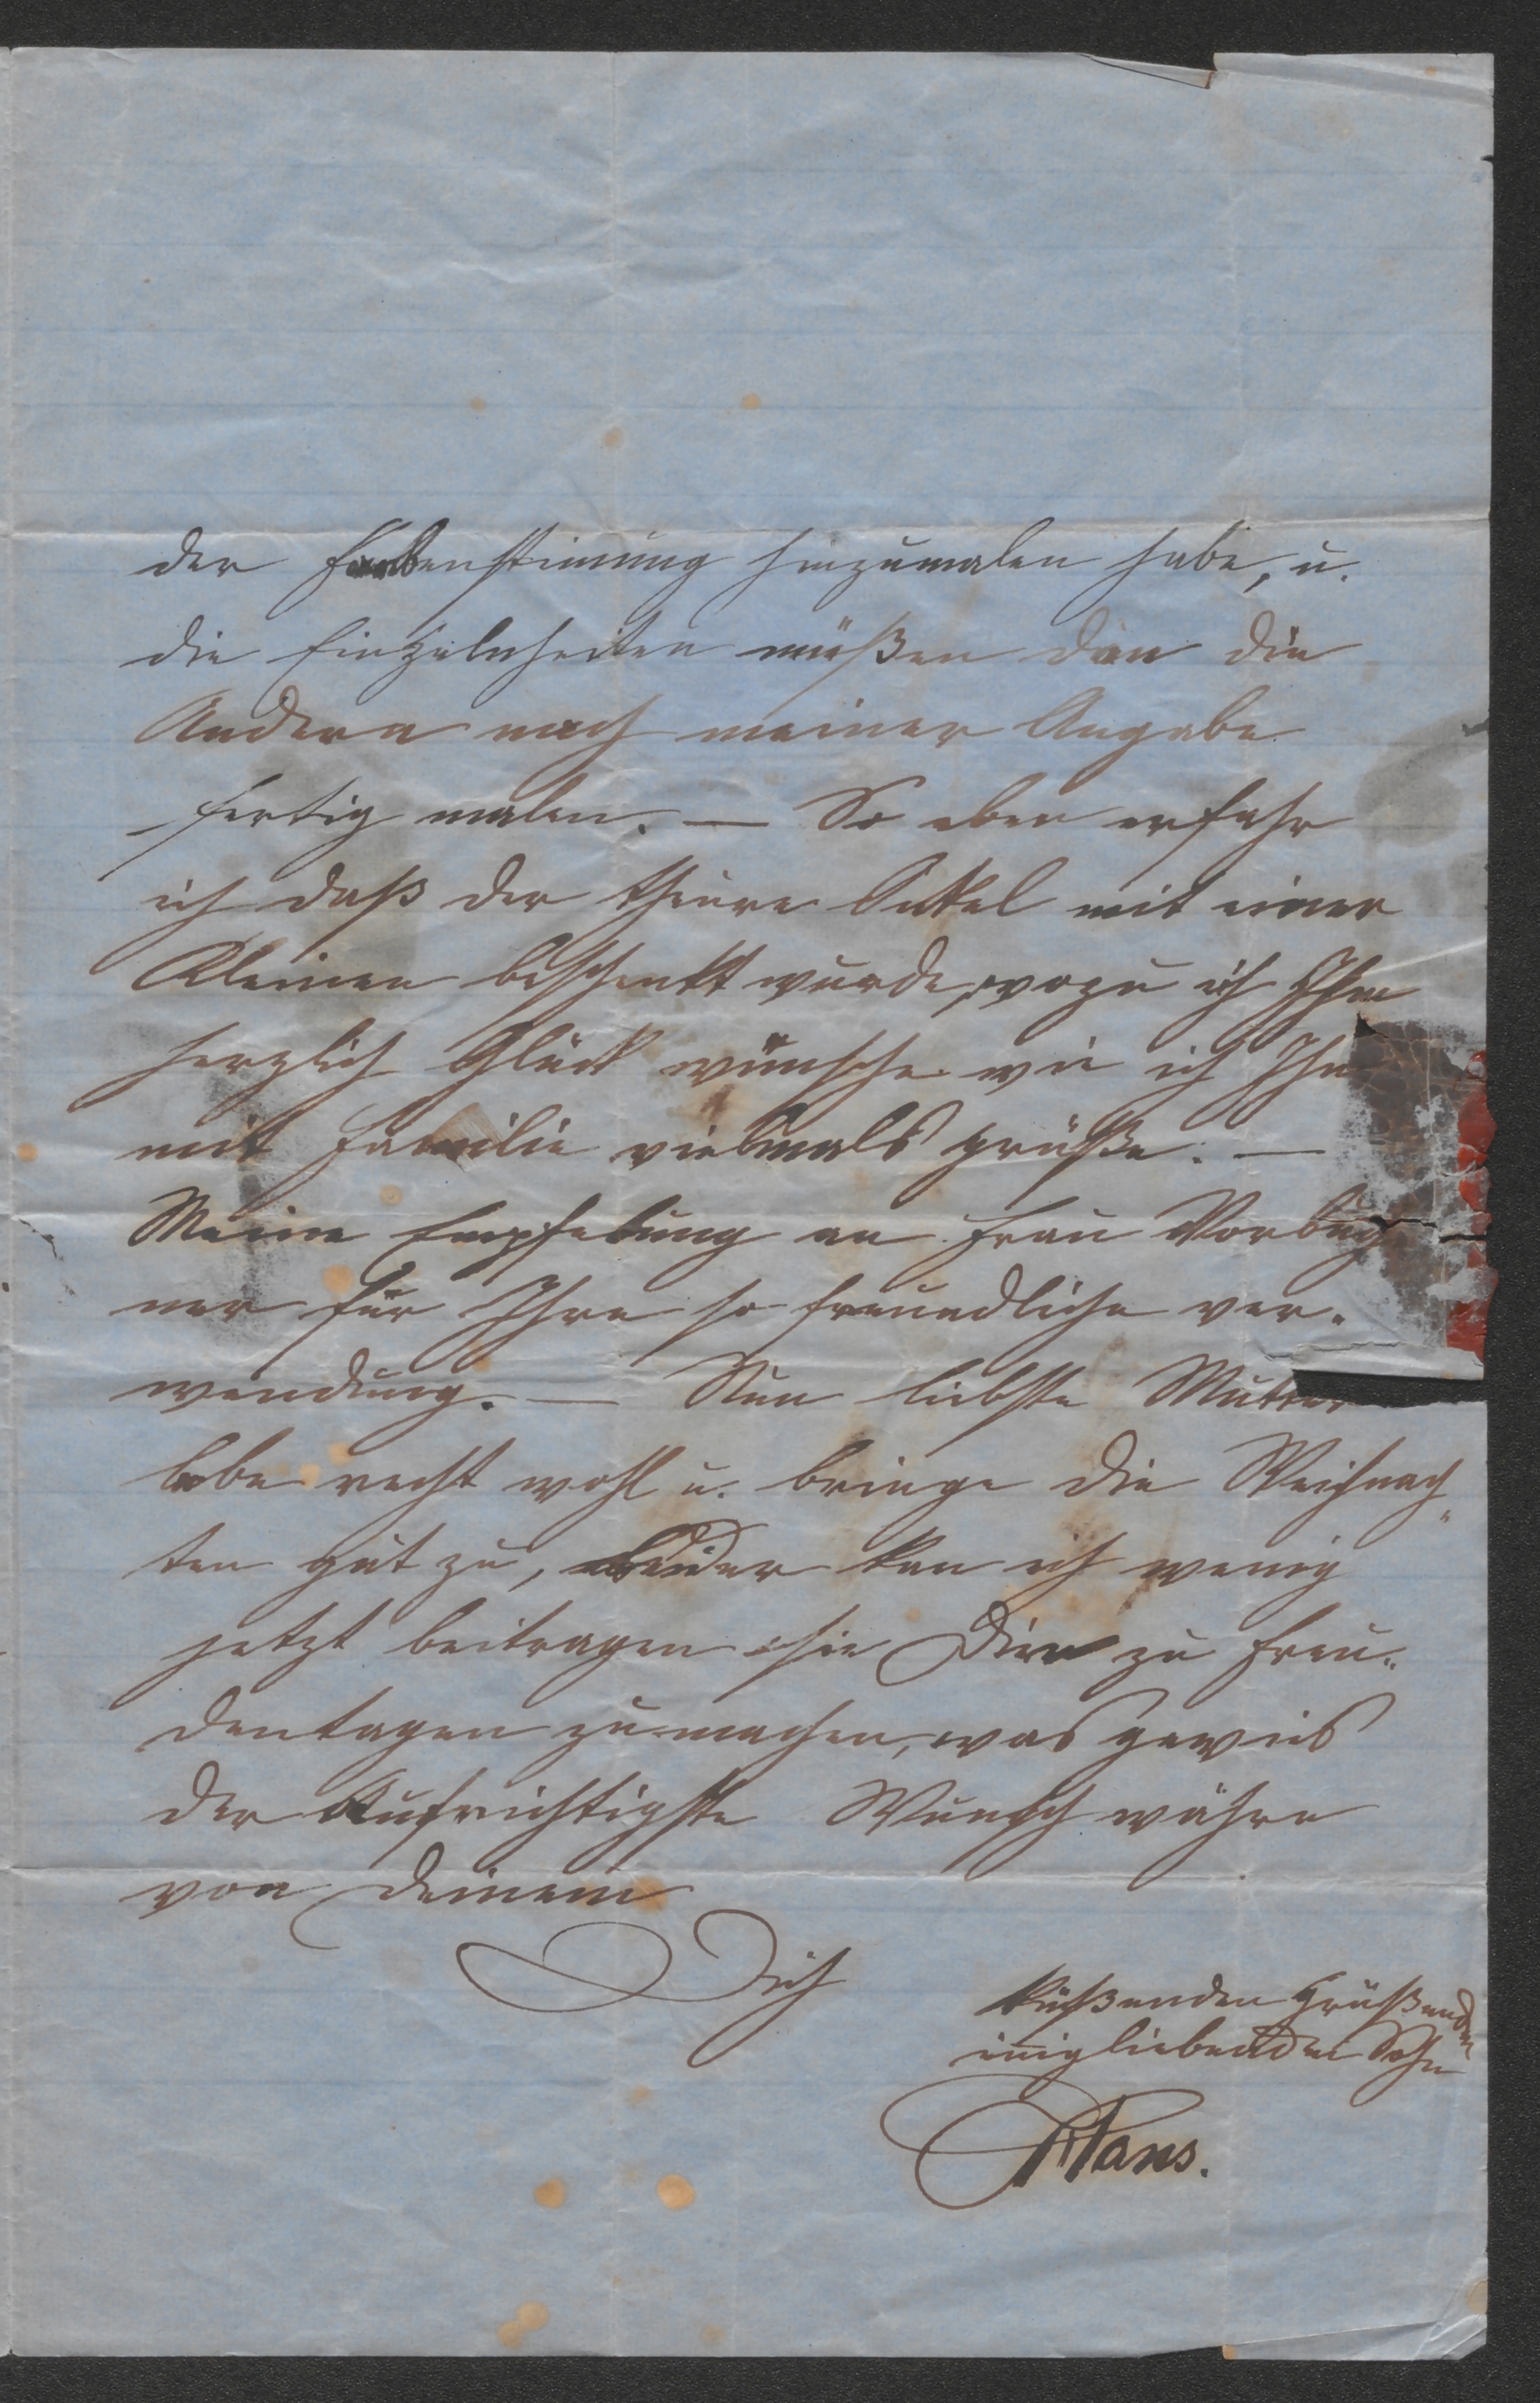 der Farbenstimung hinzumalen habe, u.
die Einzelnheiten müßen dan die
Andern nach meiner Angabe
fertig malen. — So eben erfahr
ich daß der theure Onkel mit einer
Kleinen beschenkt wurde, wozu ich Ihm
herzlich Glück wünsche wie ich Ihn
mit Familie vielmals grüße. —
Meine Empfehlung an Frau
ner für Ihre so freundliche ver-
wendung. — Nun liebste Mutter
lebe recht wohl u. bringe die Weihnach„
ten gut zu, leider kan ich wenig
jetzt beitragen sie Dir zu Freu„
dentagen zu machen, was gewis
der Aufrichtigste Wunsch währe
von Deinem
Dich
küßenden Grüßenden
inigliebenden Sohn
Hans.